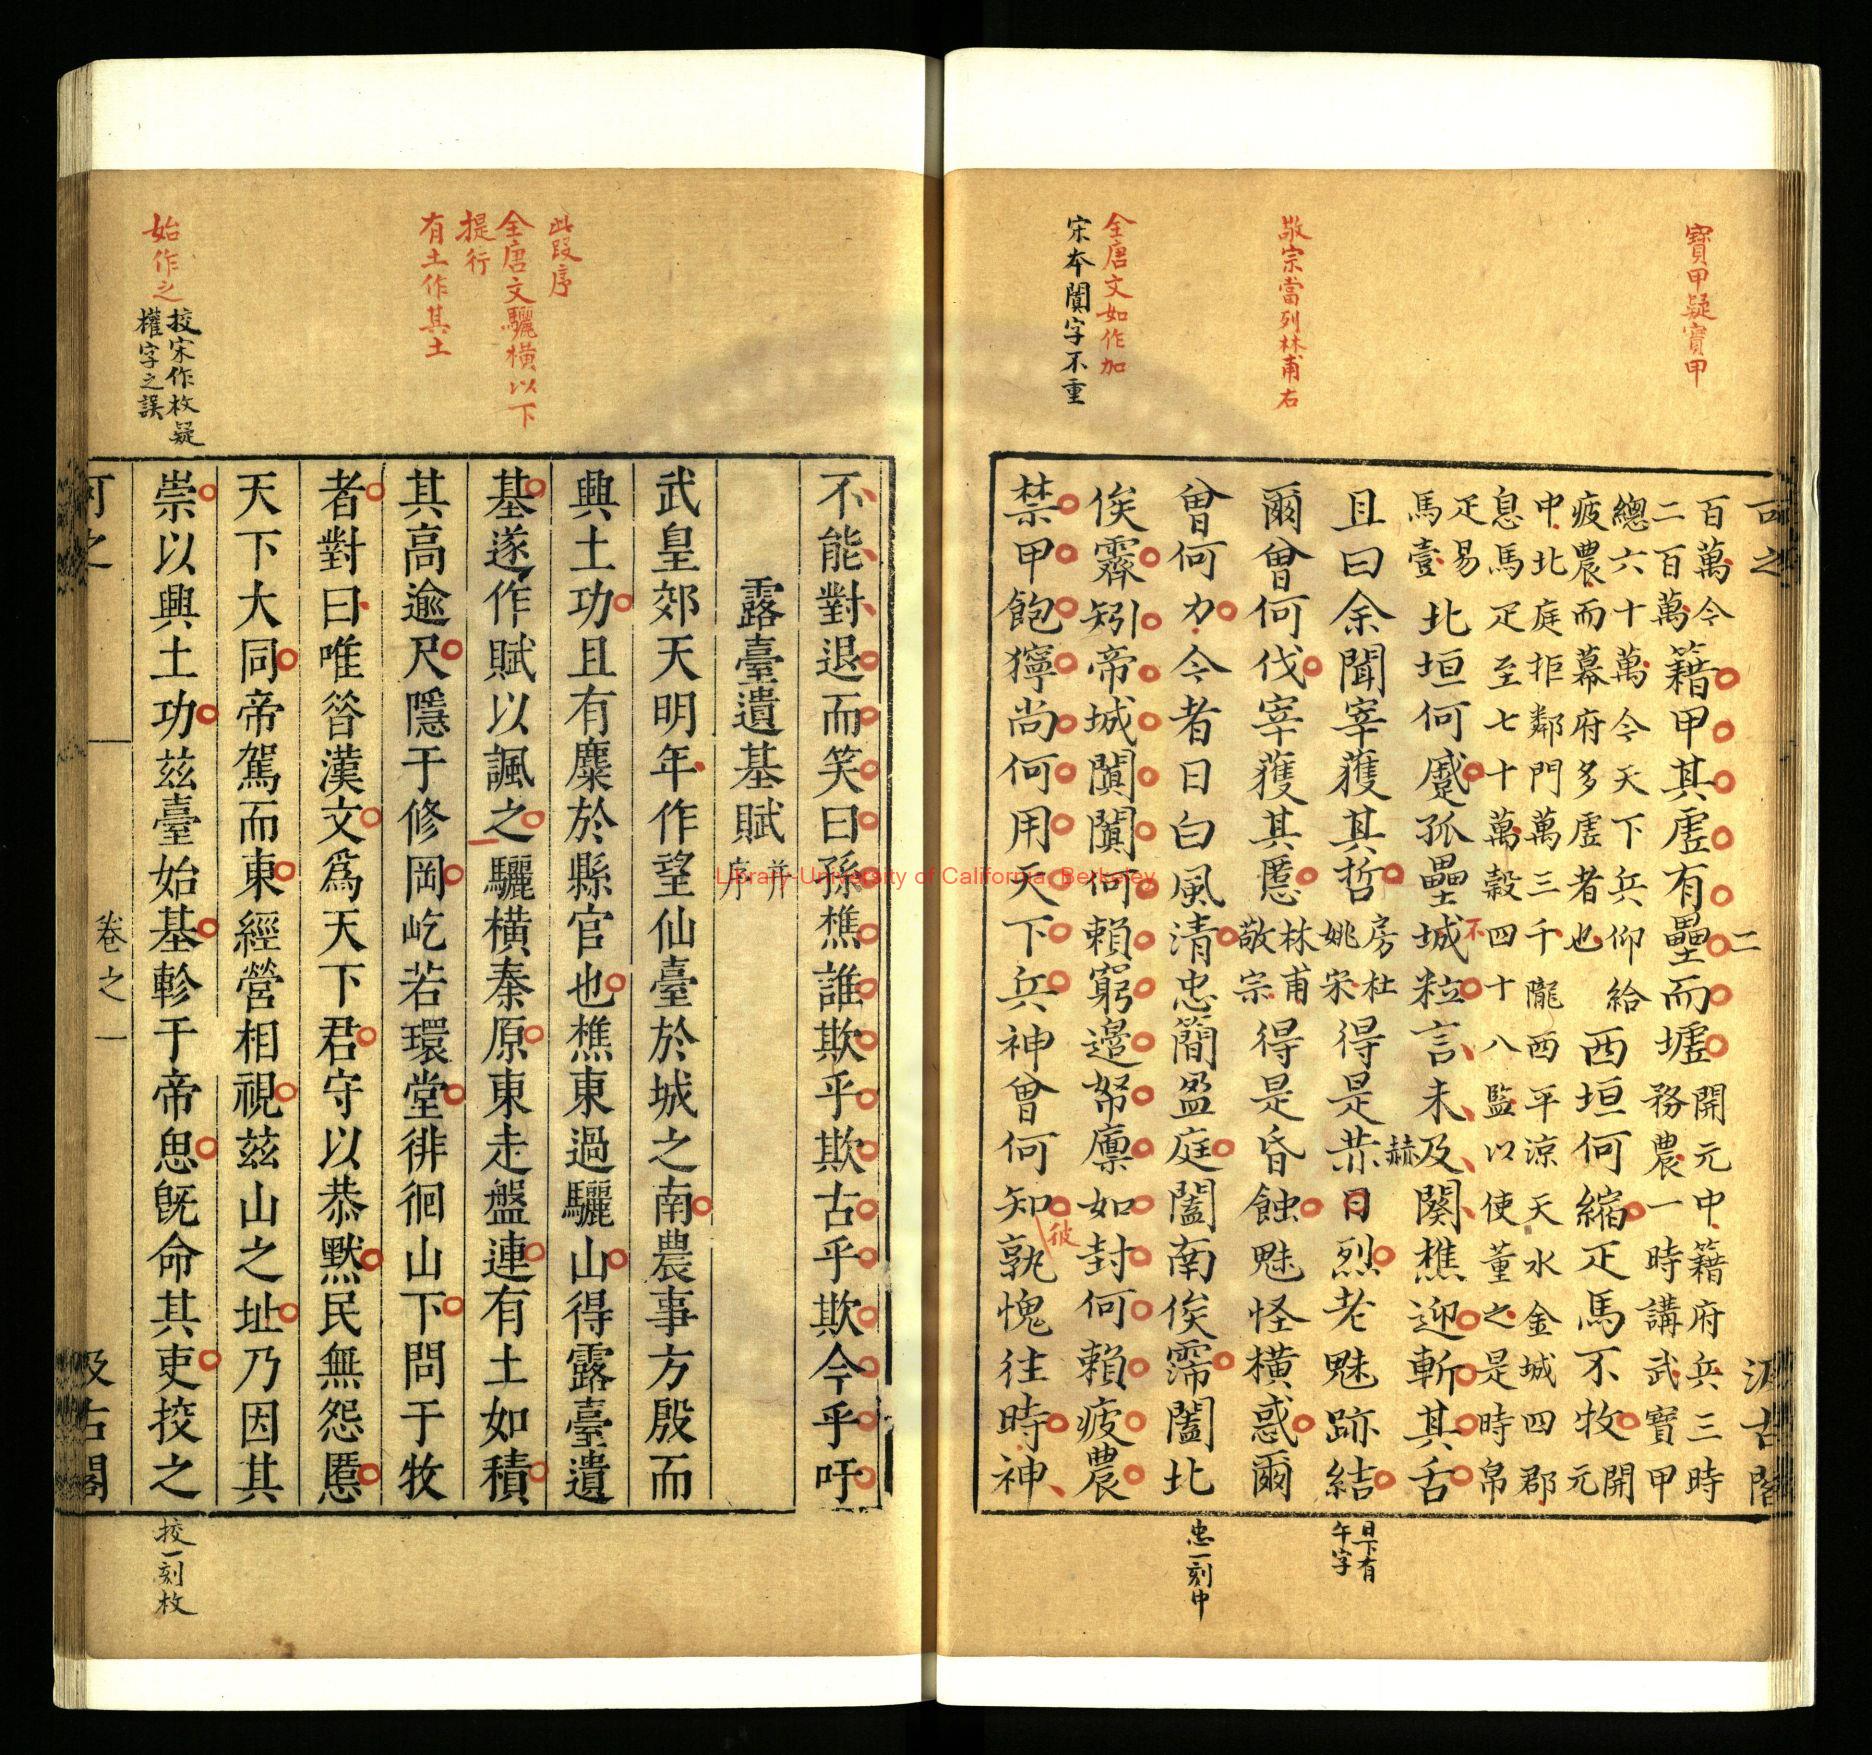 寶甲疑寳甲
敬宗當列林甫右
全唐文如作加
宋本闐字不重
可之 二 汲古閣
百萬令
二百萬
籍甲其虛有壘而墟
開元中籍府兵三時
務農一時講武寶甲
總六十萬令天下兵仰給
疲農而幕府多虛者也
西垣何縮疋馬不牧
開
元
中北庭拒鄰門萬三千隴西平涼天水金城四郡
息馬疋至七十萬穀四十八監以使董之是時帛
不
疋易
馬壹
北垣何蹙孤壘城粒言未及闋樵迎斬其舌
且曰余聞宰獲其哲
房杜
姚宋
得是恭日烈老魅跡結
赫
爾曾何伐宰獲其慝
林甫
敬宗
得是昏蝕魅怪橫惑爾
曾何力今者日白風清忠簡盈庭闔南俟霈闔北
俟霽矧帝城闐闐何賴窮邊帑廩如封何賴疲農
禁甲飽獰尚何用天下兵神曾何知孰愧往時神
彼
日下有
午字
忠一刻中
此段序
全唐文驪橫以下
提行
有土作其土
始作之
挍宋作枚疑
權字之誤
不能對退而笑曰孫樵誰欺乎欺古乎欺今乎吁
露臺遺基賦
并
序
武皇郊天明年作望仙臺於城之南農事方殷而
興土功且有麋於縣官也樵東過驪山得露臺遺
基遂作賦以諷之驪橫秦原東走盤連有土如積
其高逾尺隱于修岡屹若環堂徘徊山下問于牧
者對曰唯昝漢文爲天下君守以恭默民無怨慝
天下大同帝駕而東經營相視茲山之址乃因其
崇以興土功茲臺始基軫于帝思旣命其吏挍之
可之 卷之一 汲古閣
挍一刻枚
Library-University of California, Berkeley